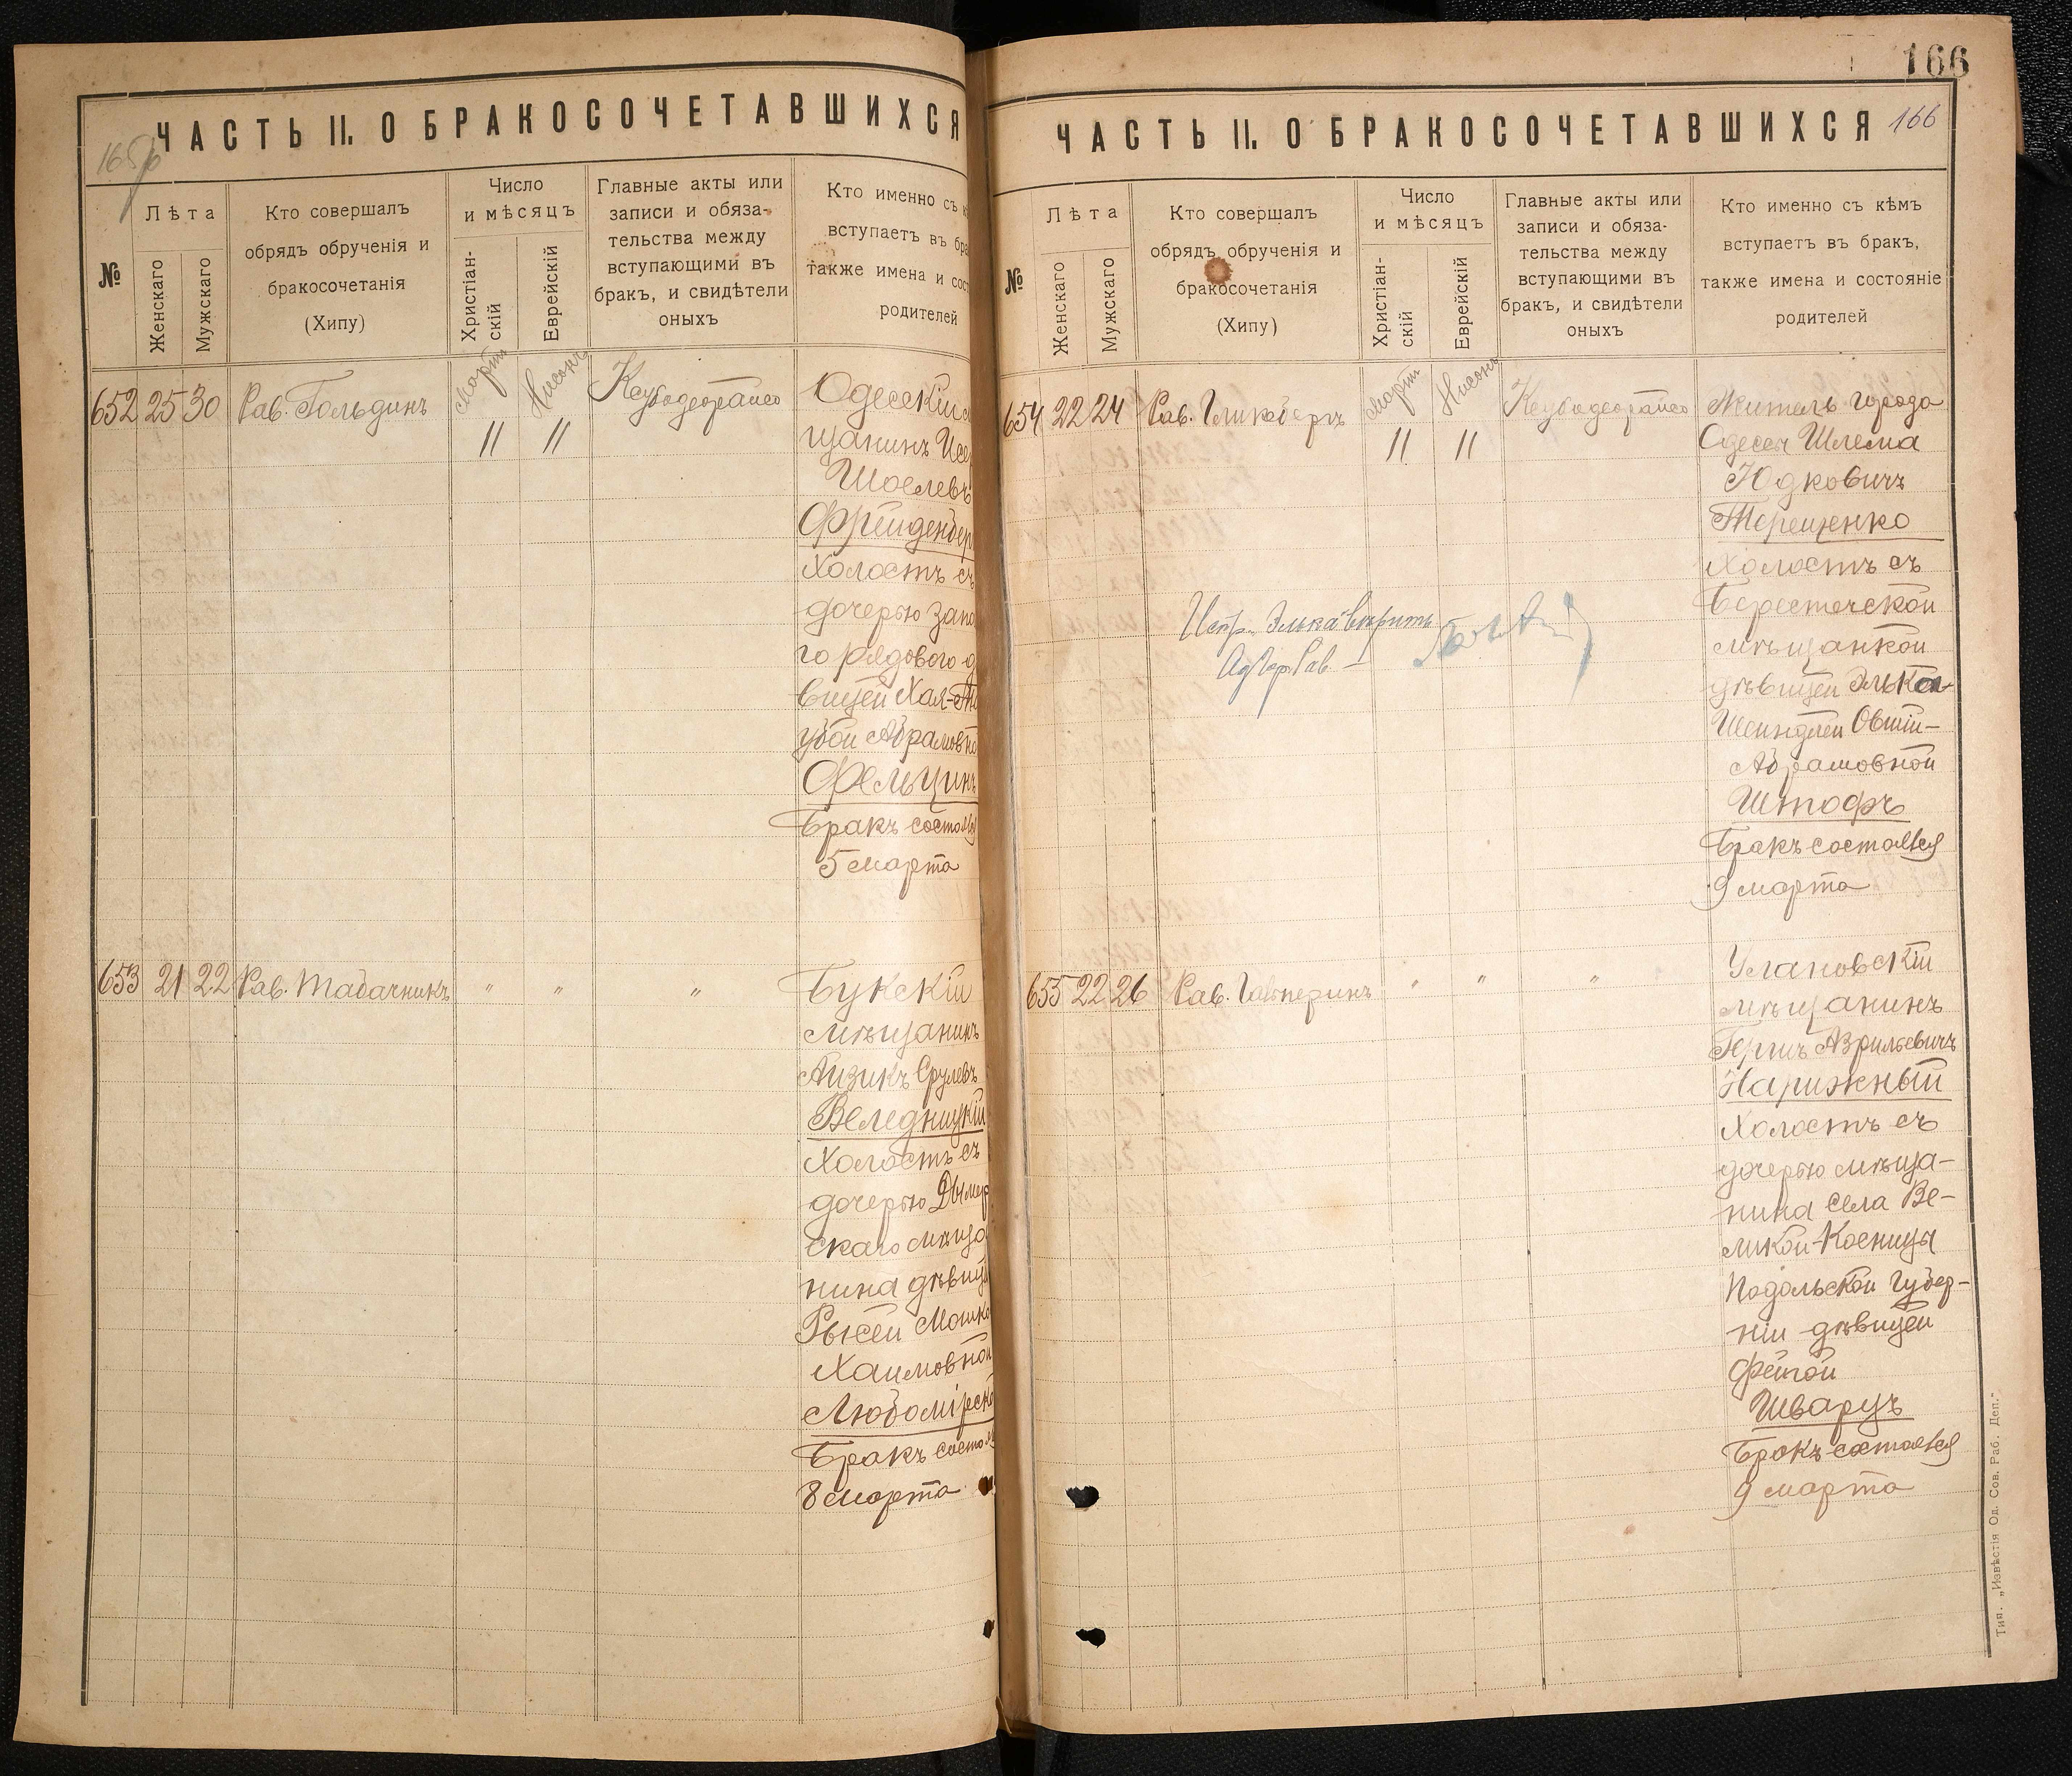 ЧАСТЬ II. О БРАКОСОЧЕТАВШИХСЯ
№
Лѣта
Женскаго
Мужскаго
Кто совершалъ
обрядъ обрученія и
бракосочетанія
(Хипу)
Число
и мѣсяцъ
Христіан-
скій
Еврейскій
Главные акты или
записи и обяза-
тельства между
вступающими въ
бракъ, и свидѣтели
оныхъ
Кто именно съ
вступаетъ въ
также имена и
родителей
652 25 30 Рав. Гольдинъ
Мартъ
Нисонъ
11 11
Одескій
щанинъ
Шоелевъ
Фрейденбер
Холостъ съ
дочерью запа
го рядового д
вицей Хая-
убой Абрамовно
Фельцин
Бракъ состоял
5 марта
653 21 22 Рав. Табачникъ " " "
Букскій
мѣщанинъ
Айзикъ Срулевъ
Веледницкій
Холостъ съ
дочерью Дымер
скаго мѣща
нина дѣвиц
Рысей Мошко
Хаимовной
Любомірско
Бракъ состоя
8 марта
166
ЧАСТЬ II. О БРАКОСОЧЕТАВШИХСЯ 166
№
Лѣта
Женскаго
Мужскаго
Кто совершалъ
обрядъ обрученія и
бракосочетанія
(Хипу)
Число
и мѣсяцъ
Христіан-
скій
Еврейскій
Главные акты или
записи и обяза-
тельства между
вступающими въ
бракъ, и свидѣтели
оныхъ
Кто именно съ кѣмъ
вступаетъ въ бракъ,
также имена и состояніе
родителей
654 22 24 Рав. Гликбергъ
Мартъ
Нисонъ
11 11
Житель города
Одессы Шлема
Юдковичъ
Терещенко
Холостъ съ
Берестечской
мѣщанкой
дѣвицей Элька
Шейндлей Овшій-
Абрамовной
Штофъ
Бракъ состоялся
9 марта
Испр. "Элька" вѣрить
655 22 26 Рав. Гальперинъ " " "
Улановскій
мѣщанинъ
Гершъ Азрилевичъ
Нарижный
Холостъ съ
дочерью мѣща-
нина села Ве-
ликой-Косницы
Подольской Губер-
ніи дѣвицей
Фейгой
Шварцъ
Бракъ состоялся
9 марта
Тип. „Извѣстія Од. Сов. Раб. Деп."